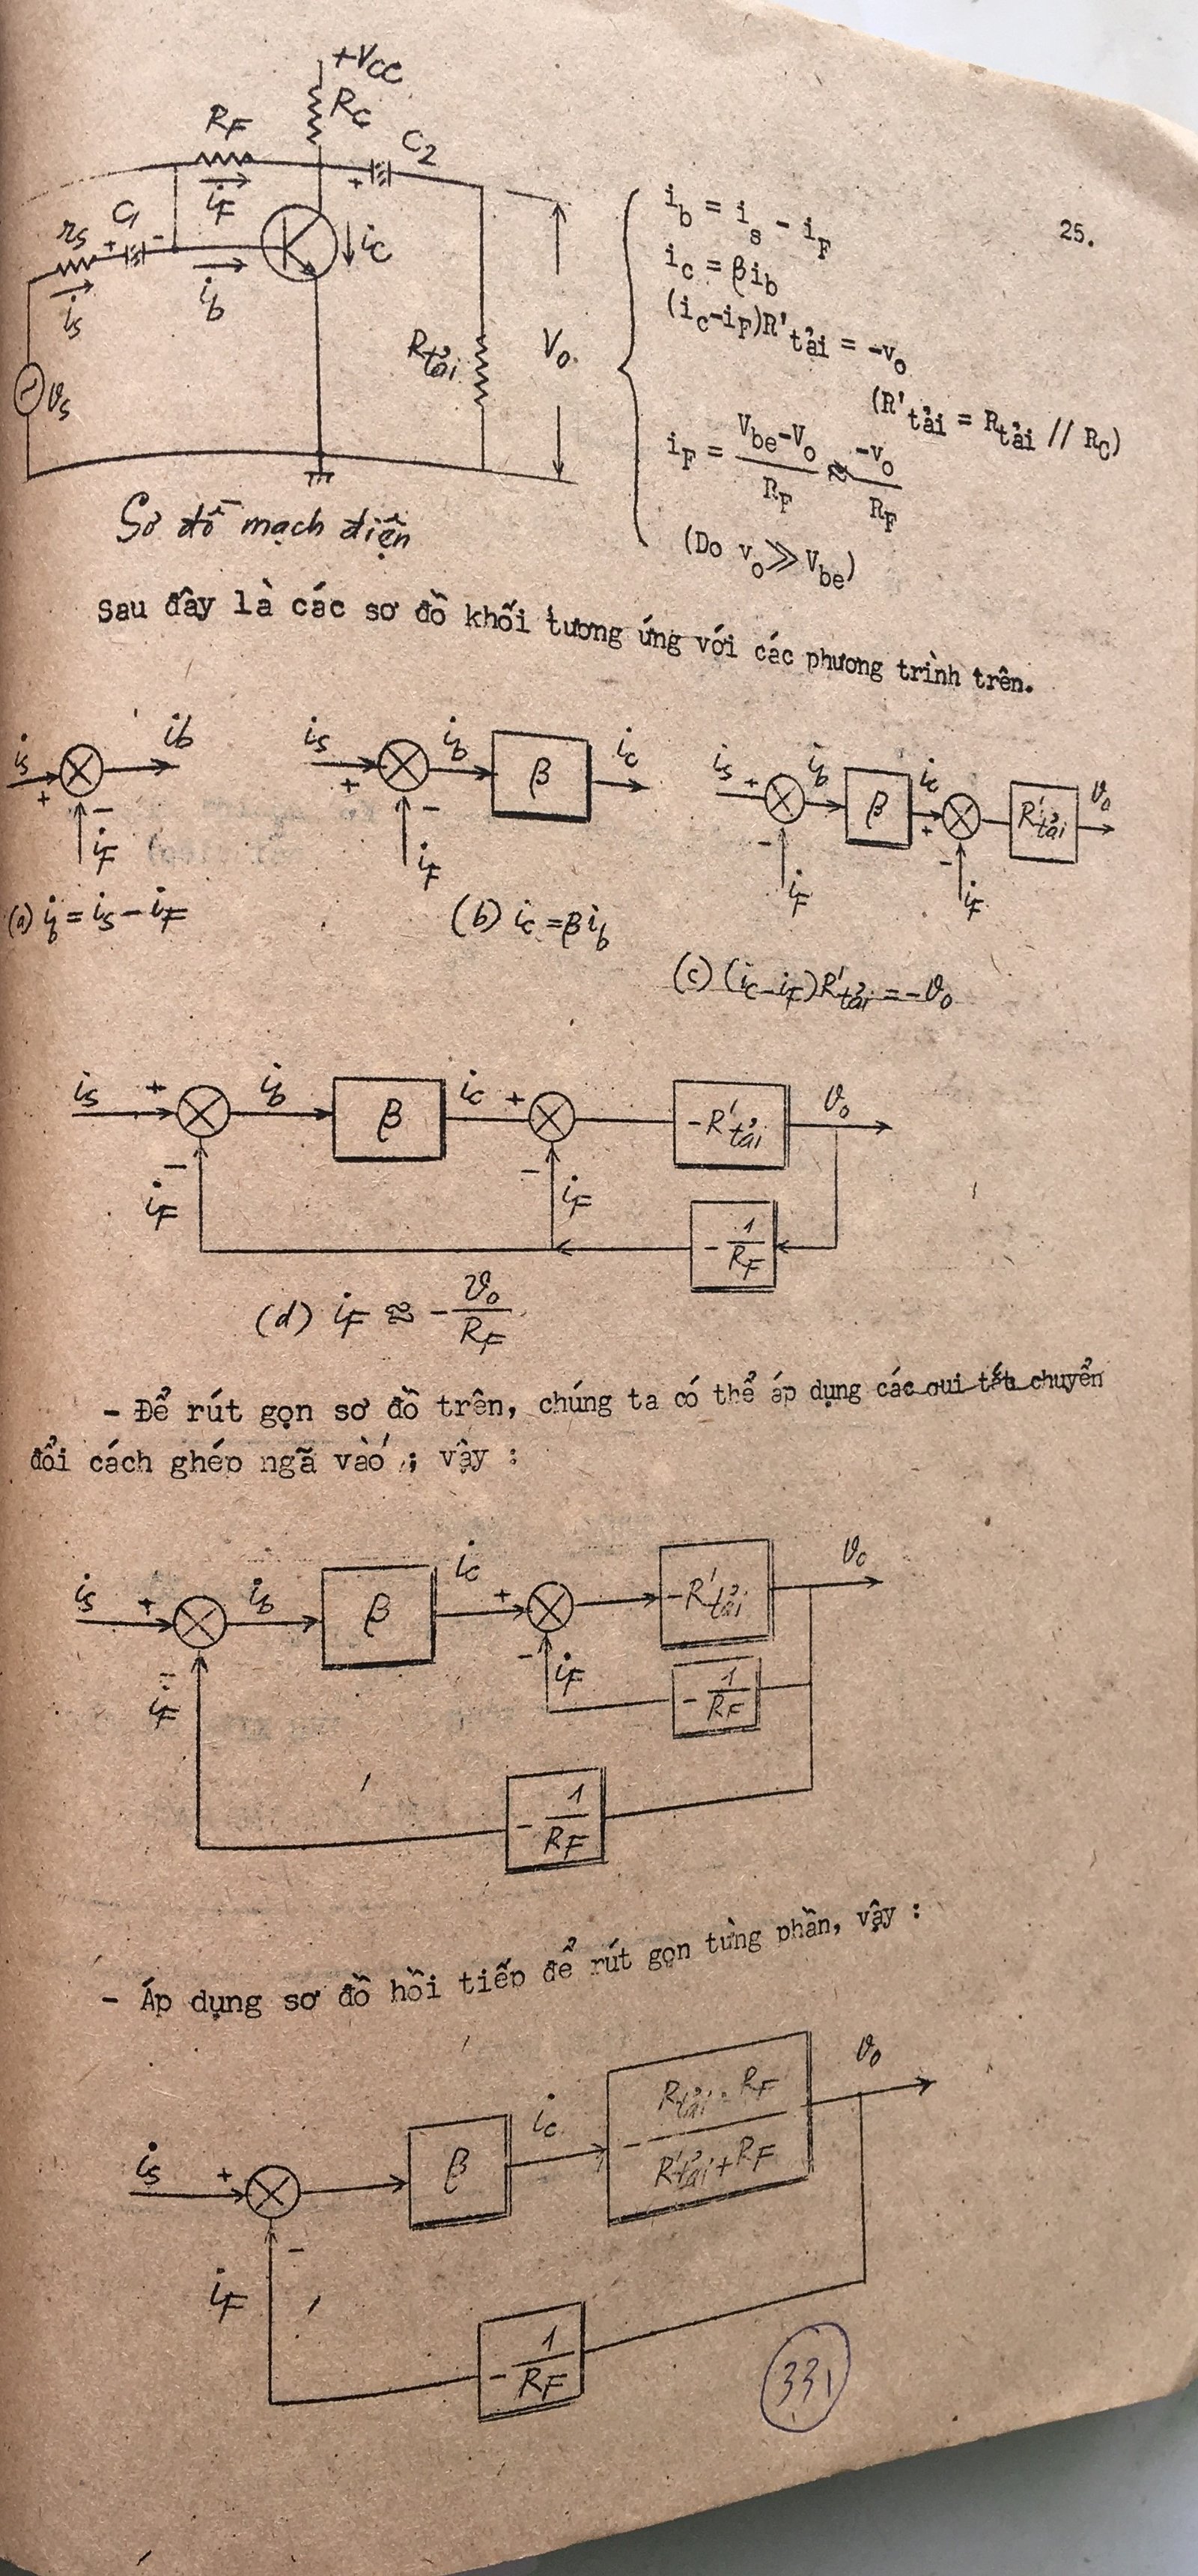 +Vcc
RC
RF
C2
iF
rs
C1
+
-
+
ic
is
ib
vs
Rtải
Vo
Sơ đồ mạch điện
25.
ib = is - iF
ic = βib
(ic-iF)R'tải = -vo
(R'tải = Rtải // RC)
iF = Vbe-Vo / RF ≈ -vo / RF
(Do vo ≫ Vbe)
Sau đây là các sơ đồ khối tương ứng với các phương trình trên.
is + ib
- iF
(a) ib = is - iF
is + ib β ic
- iF
(b) ic = βib
is + ib β ic + R'tải vo
- iF - iF
(c) (ic-iF)R'tải = -vo
is + ib β ic + -R'tải vo
- iF - iF - 1/RF
(d) iF ≈ - vo/RF
- Để rút gọn sơ đồ trên, chúng ta có thể áp dụng các qui tắc chuyển
đổi cách ghép ngã vào ; vậy :
is + ib β ic + -R'tải vo
- iF - iF - 1/RF
- 1/RF
- Áp dụng sơ đồ hồi tiếp để rút gọn từng phần, vậy :
is + β ic - R'tải . RF / R'tải + RF vo
- iF
- 1/RF
331